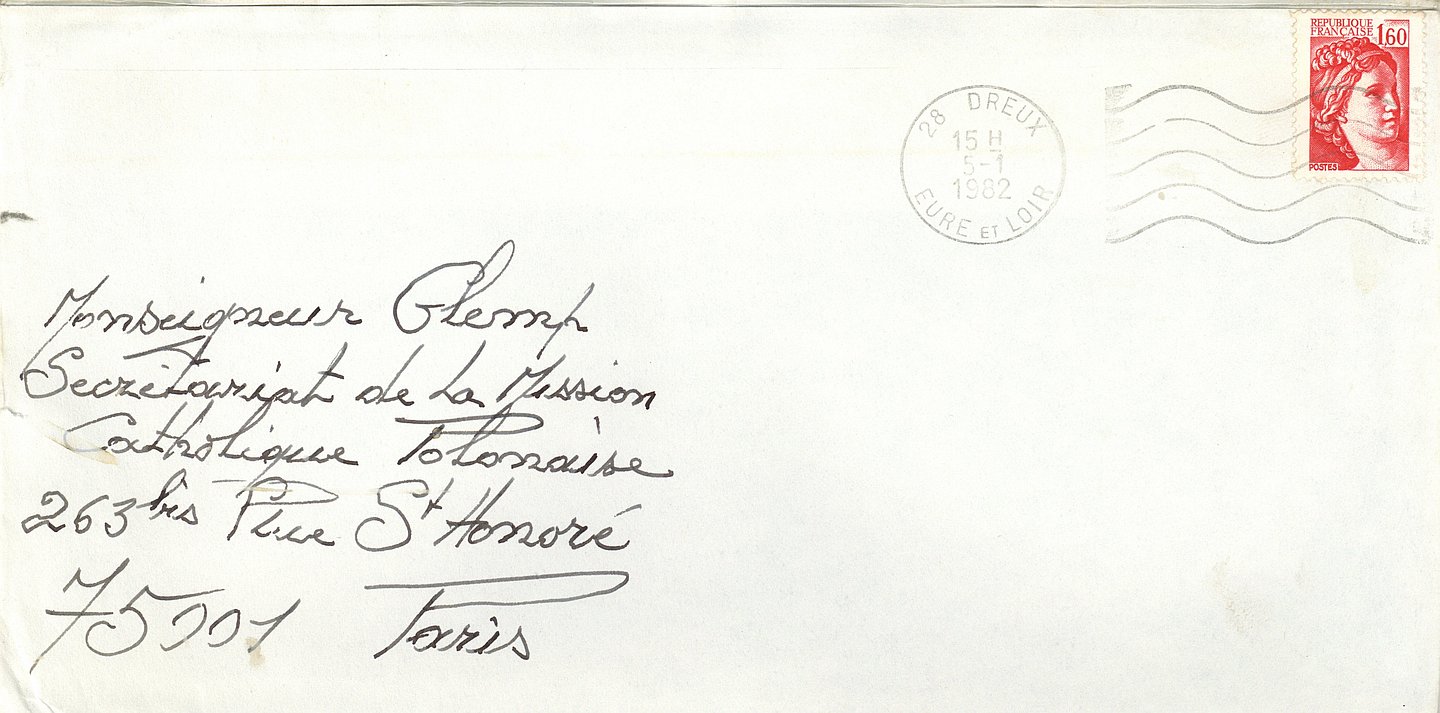 REPUBLIQUE
FRANÇAISE 1,60
POSTES
28 DREUX
15 H
5-1
1982
EURE ET LOIR
Monseigneur Glemp
Secrétariat de la Mission
Catholique Polonaise
263 bis Rue St Honoré
75001 Paris